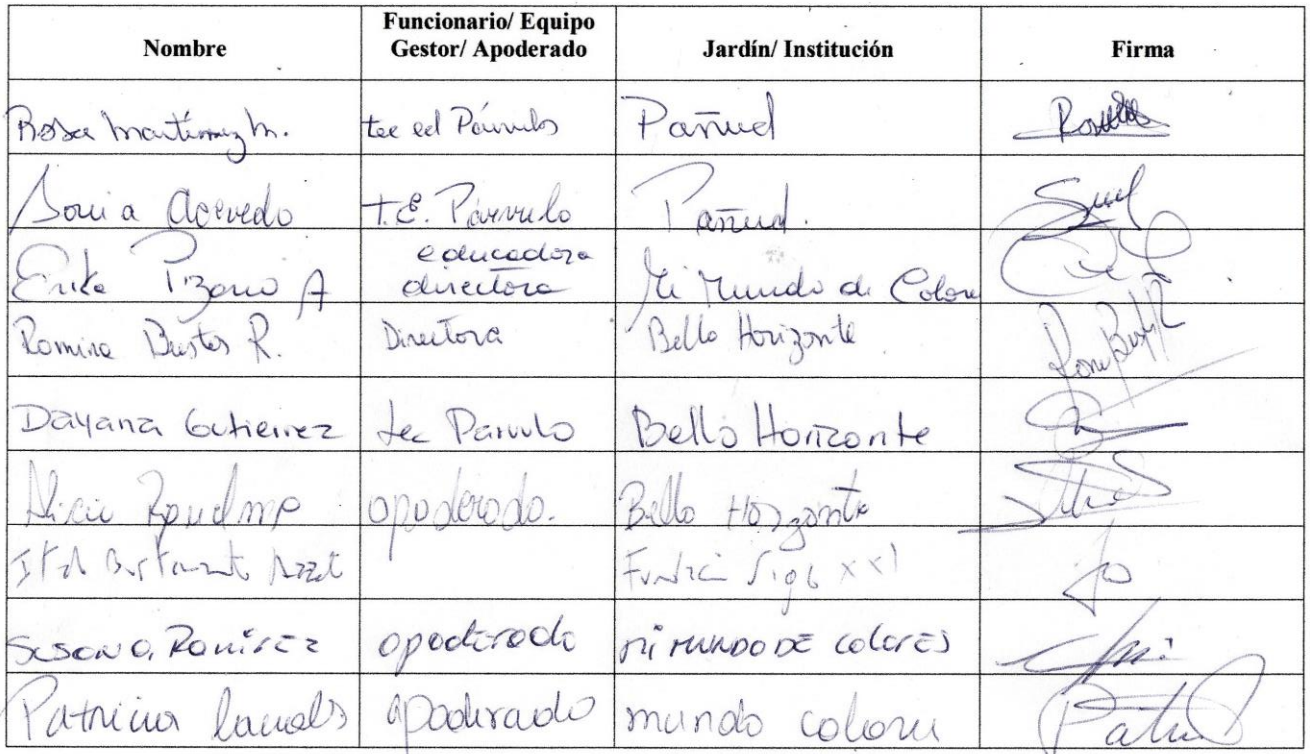 Nombre
Funcionario/ Equipo
Gestor/ Apoderado
Jardín/ Institución
Firma
Rosa Martínez M. tec ed Párvulos Pañud
Sonia Acevedo T.E. Párvulo Pañud.
Erika Pizarro A educadora
directora Mi Mundo de Colore
Romina Bustos R. Directora Bello Horizonte
Dayana Gutierrez tec Parvulo Bello Horizonte
Alicia apoderado. Bello Horizonte
Siglo XXI
Susana Ramírez apoderado mi MUNDO DE COLORES
Patricia apoderado mundo colores